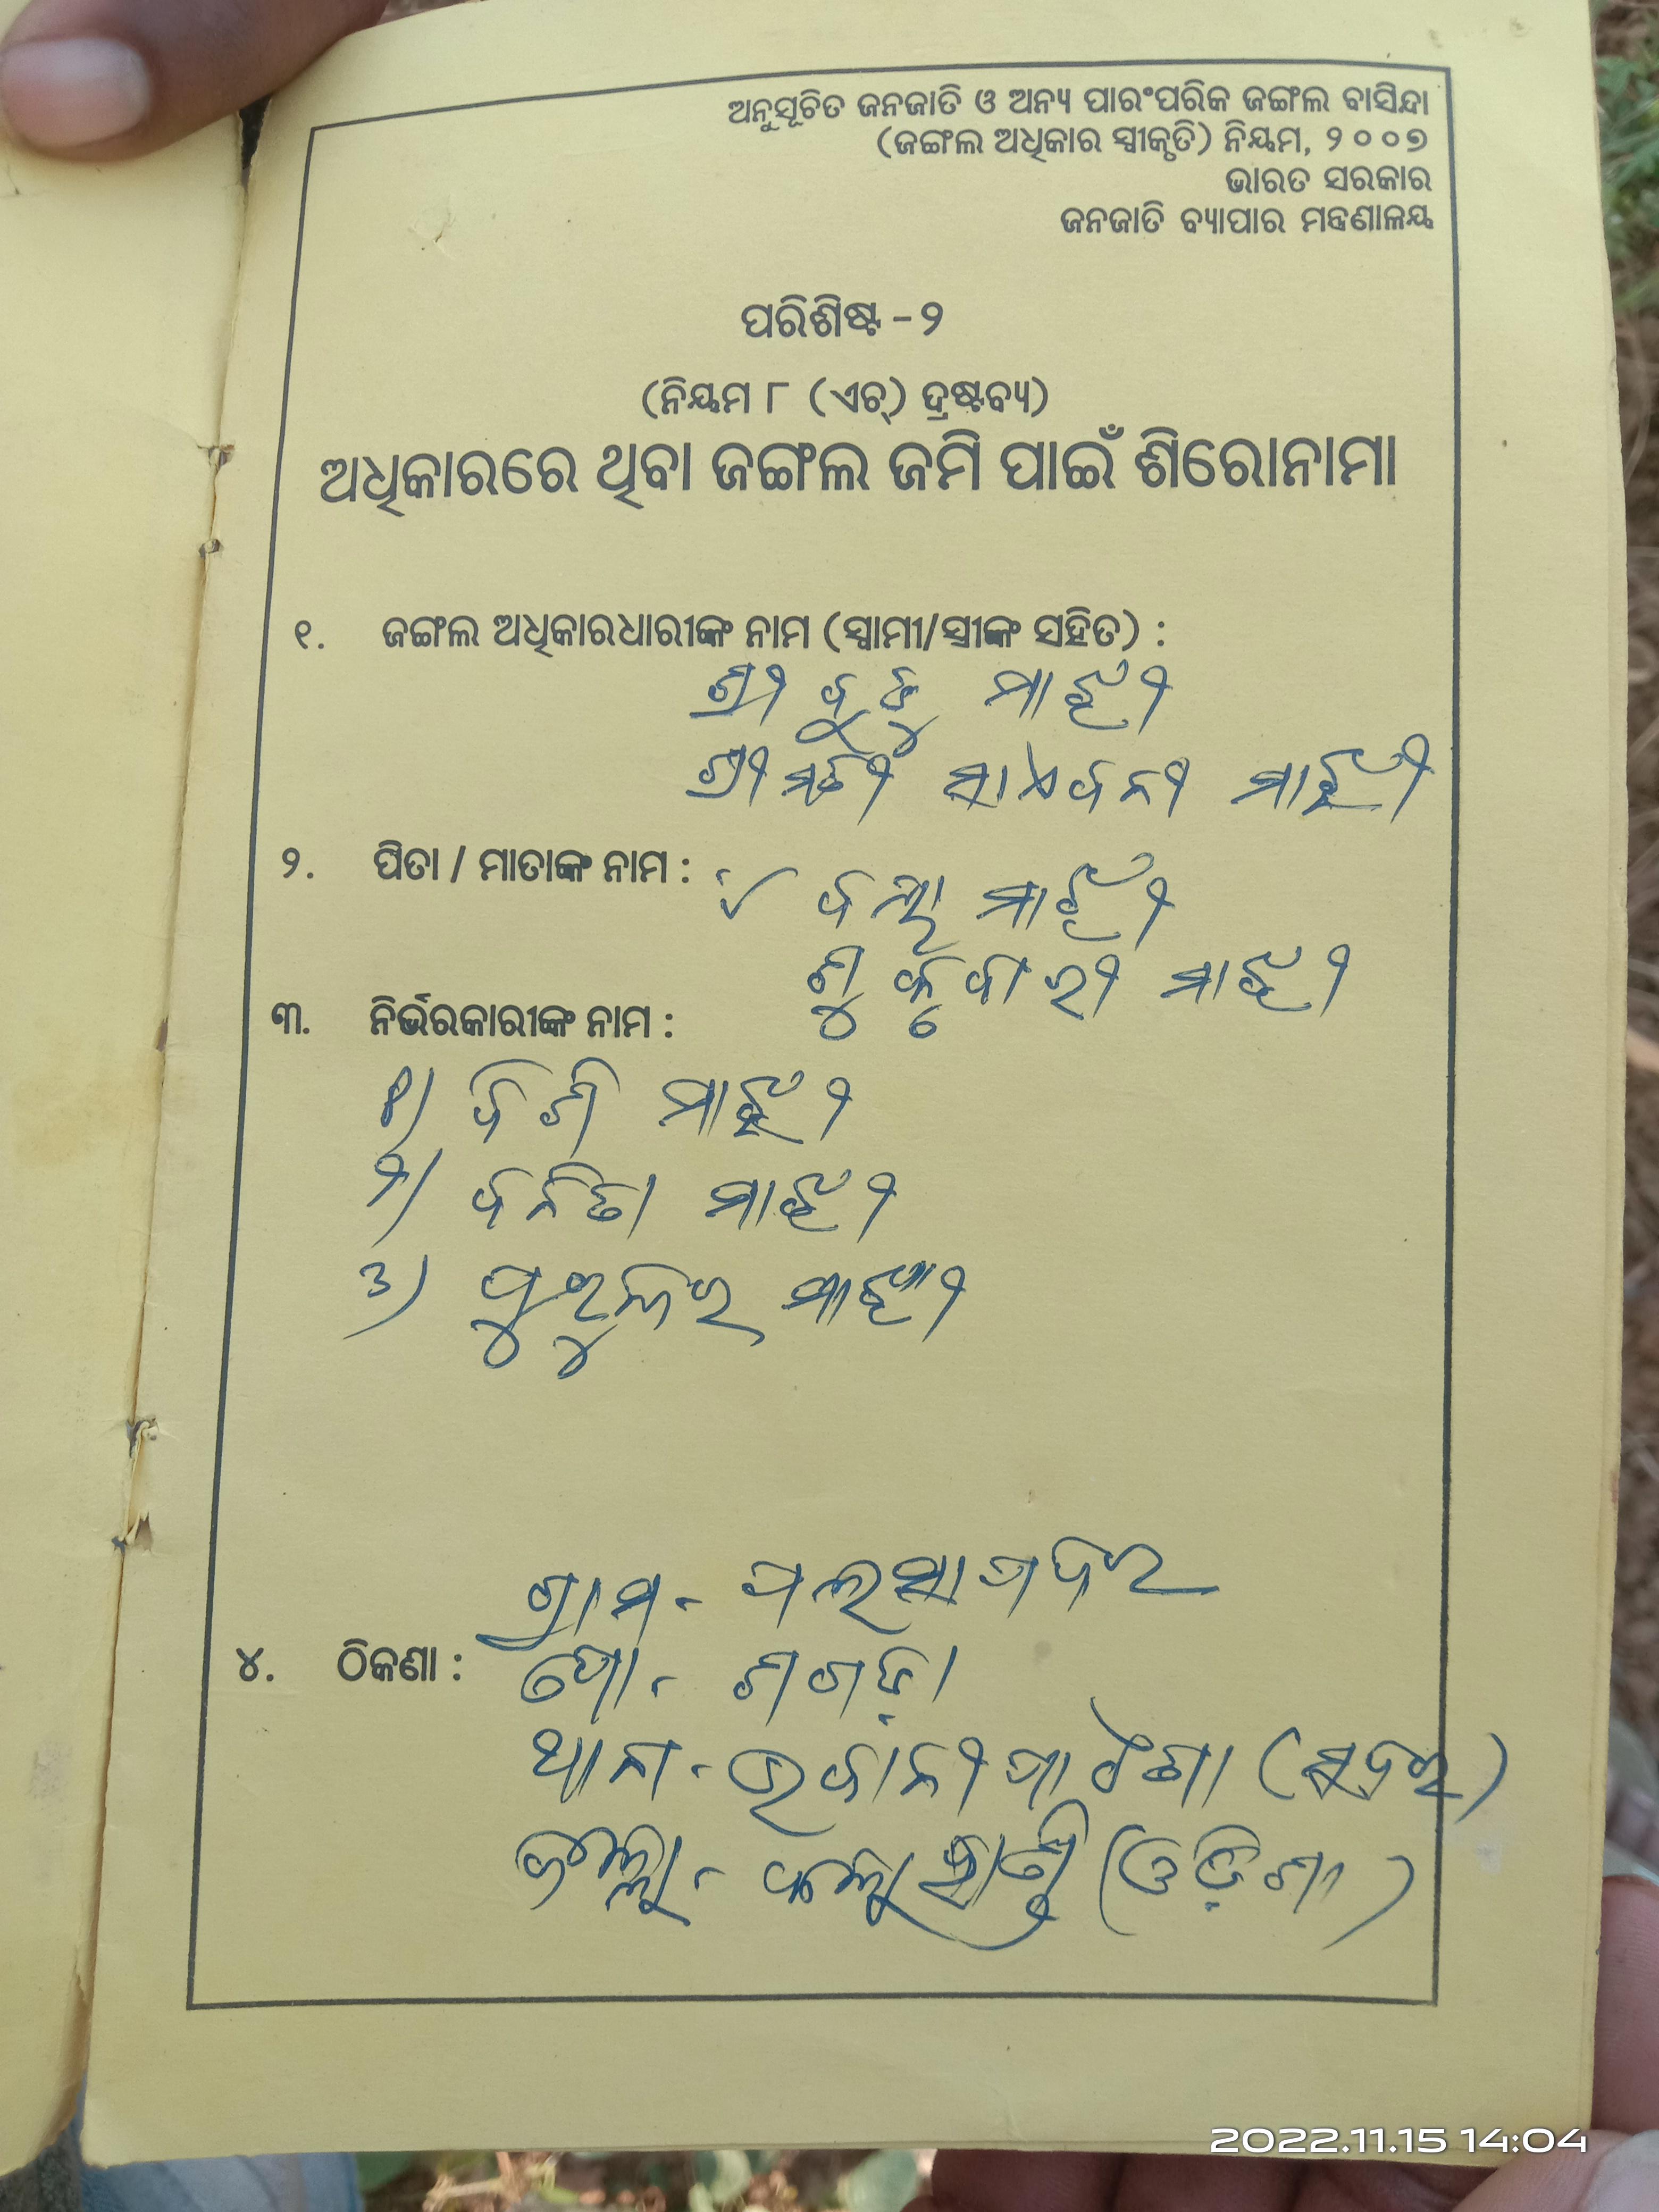 ଅନୁସୂଚିତ ଜନଜାତି ଓ ଅନ୍ୟ ପାରଂପରିକ ଜଙ୍ଗଲ ବାସିନ୍ଦା
(ଜଙ୍ଗଲ ଅଧିକାର ସ୍ୱୀକୃତି) ନିୟମ, ୨୦୦୭
ଭାରତ ସରକାର
ଜନଜାତି ବ୍ୟାପାର ମନ୍ତ୍ରଣାଳୟ
ପରିଶିଷ୍ଟ - ୨
(ନିୟମ ୮ (ଏଚ୍) ଦ୍ରଷ୍ଟବ୍ୟ)
ଅଧିକାରରେ ଥିବା ଜଙ୍ଗଲ ଜମି ପାଇଁ ଶିରୋନାମା
୧. ଜଙ୍ଗଲ ଅଧିକାରଧାରୀଙ୍କ ନାମ (ସ୍ୱାମୀ/ସ୍ତ୍ରୀଙ୍କ ସହିତ) :
ଶ୍ରୀ ବୁଢୁ ମାଝୀ
ଶ୍ରୀମତୀ ମାଝୀ
୨. ପିତା / ମାତାଙ୍କ ନାମ :
ମାଝୀ
ଶୁକୃବାରୀ ମାଝୀ
୩. ନିର୍ଭରକାରୀଙ୍କ ନାମ :
୧) ମାଝୀ
୨) ବନିତା ମାଝୀ
୩) ମାଝୀ
ଗ୍ରାମ -
୪. ଠିକଣା : ପୋ - ଶଗଡ଼ା
ଥାନା - ଭବାନୀପାଟଣା (ସଦର)
ଜିଲ୍ଲା - କଳାହାଣ୍ଡି (ଓଡ଼ିଶା)
2022.11.15 14:04